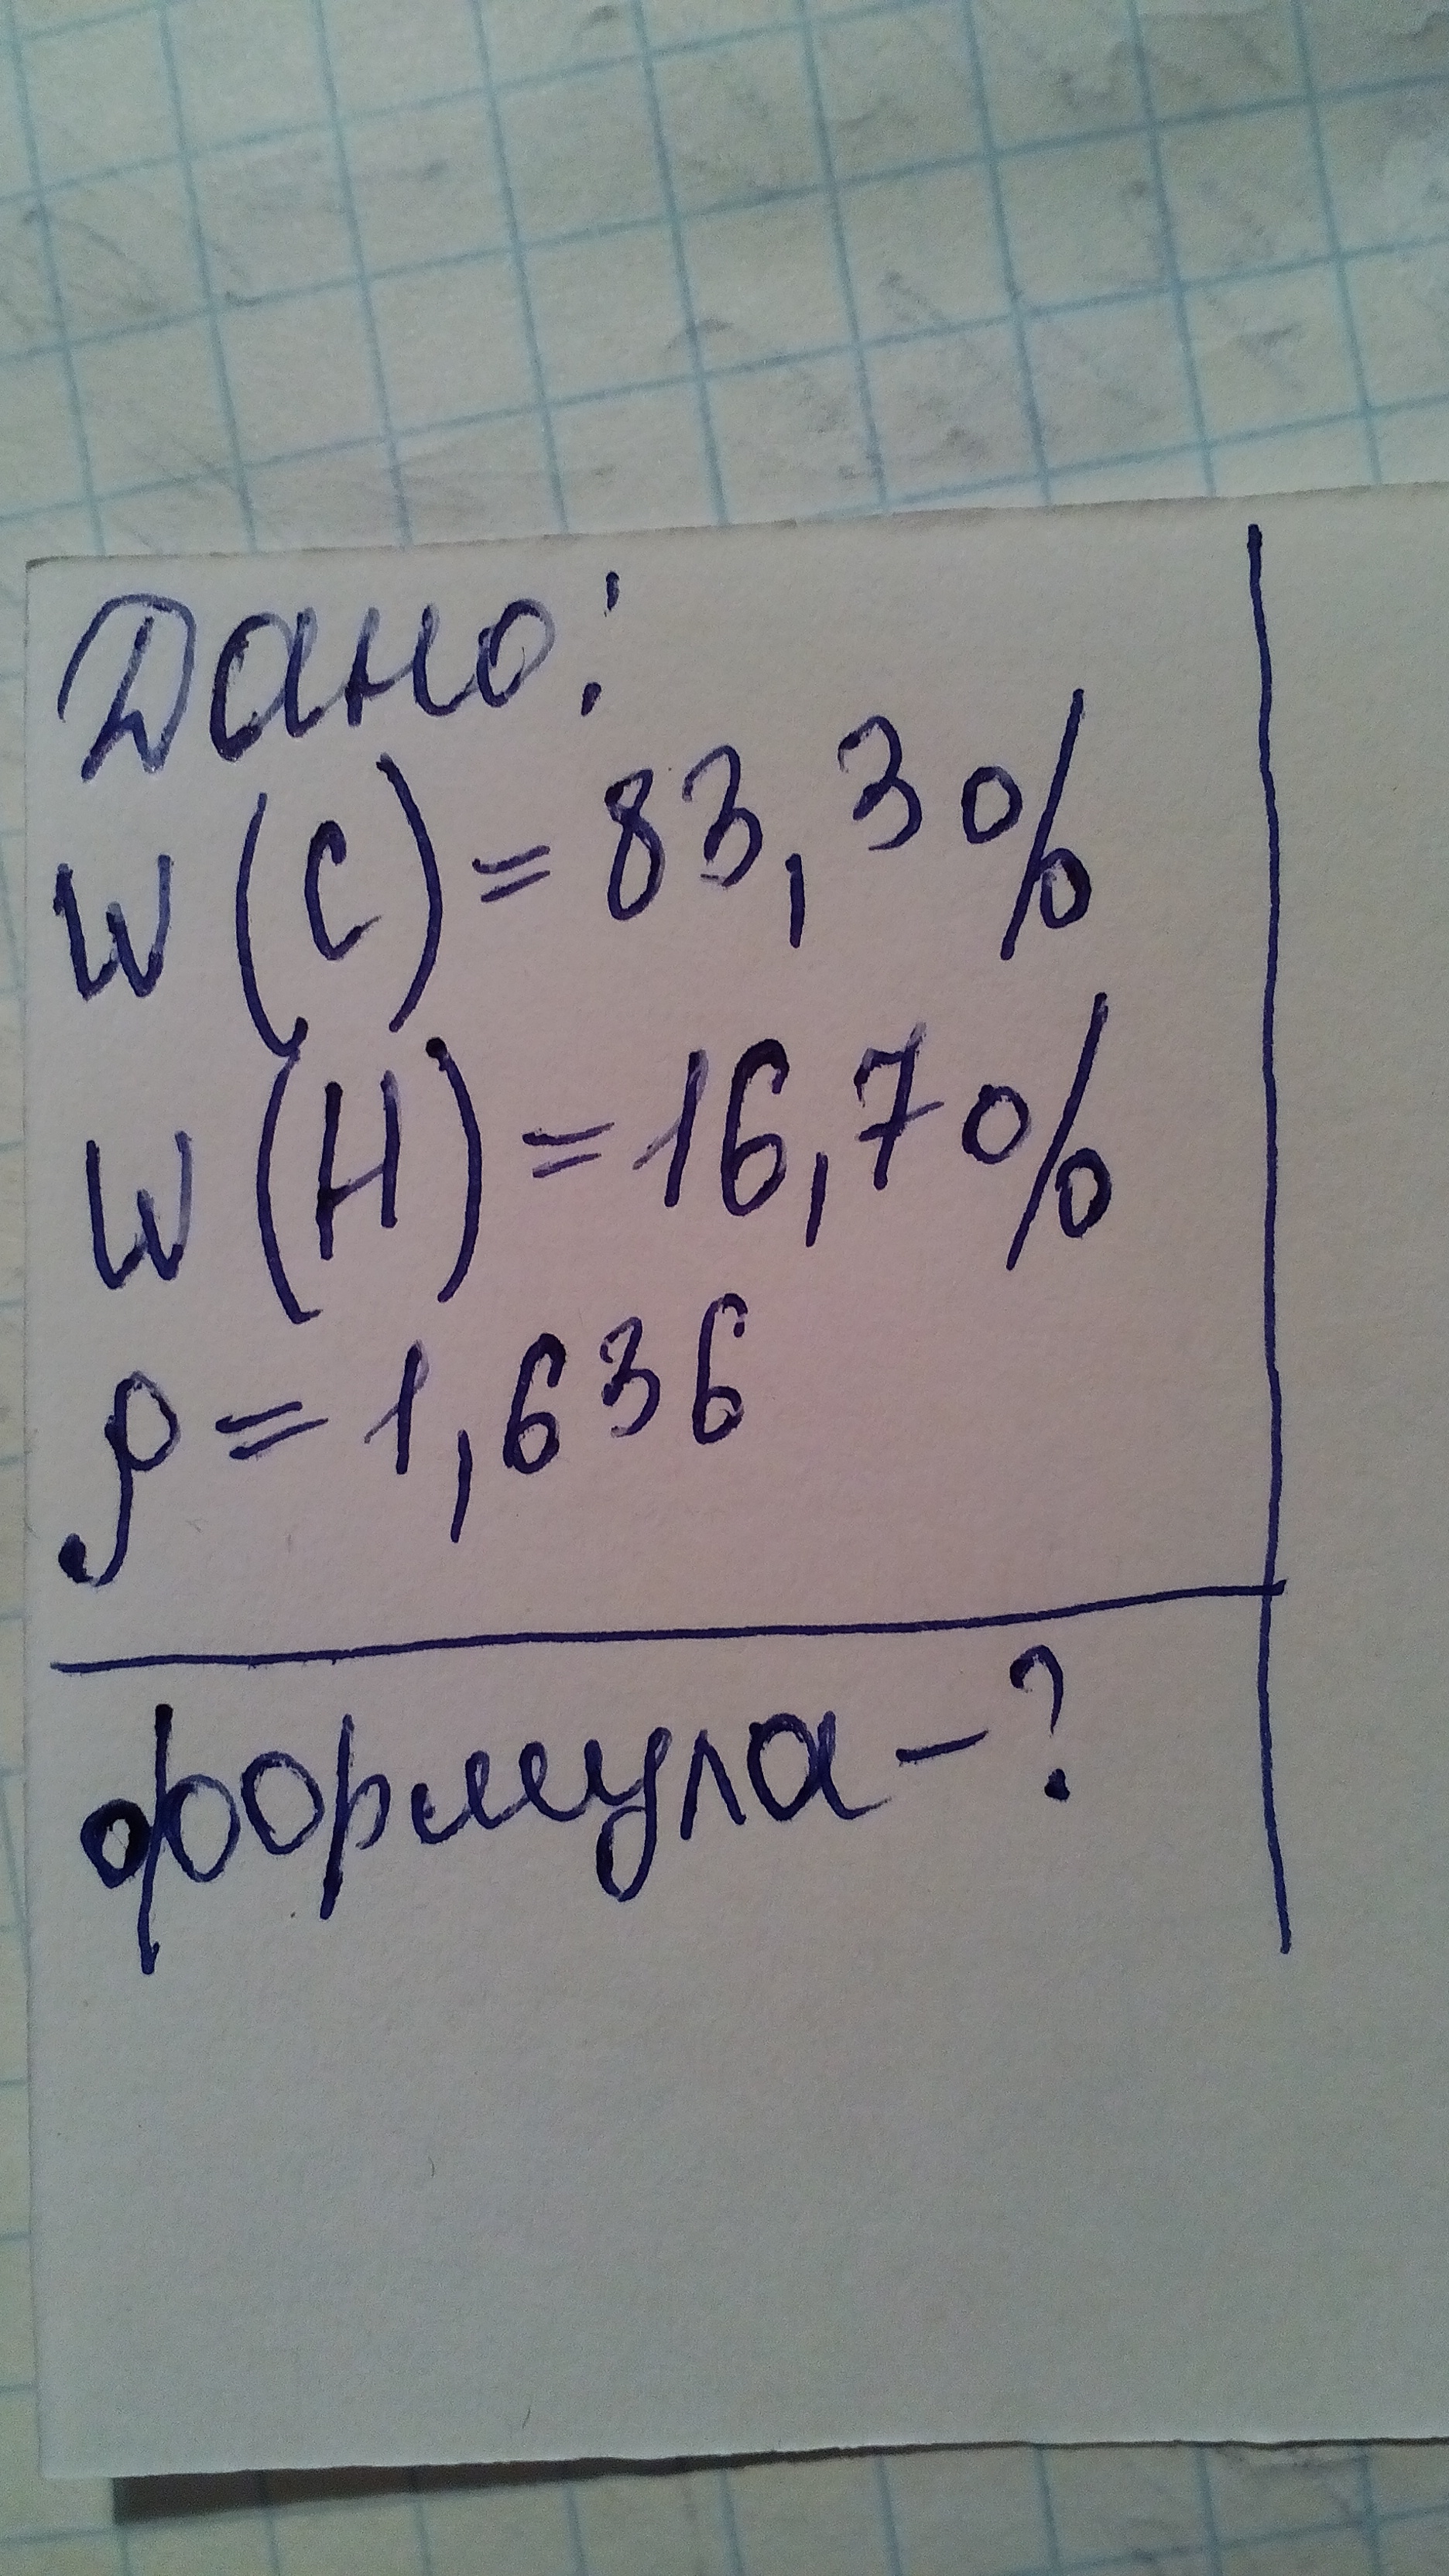 Дано:
W (C) = 83,3%
W (H) = 16,7%
ρ = 1,636
формула - ?